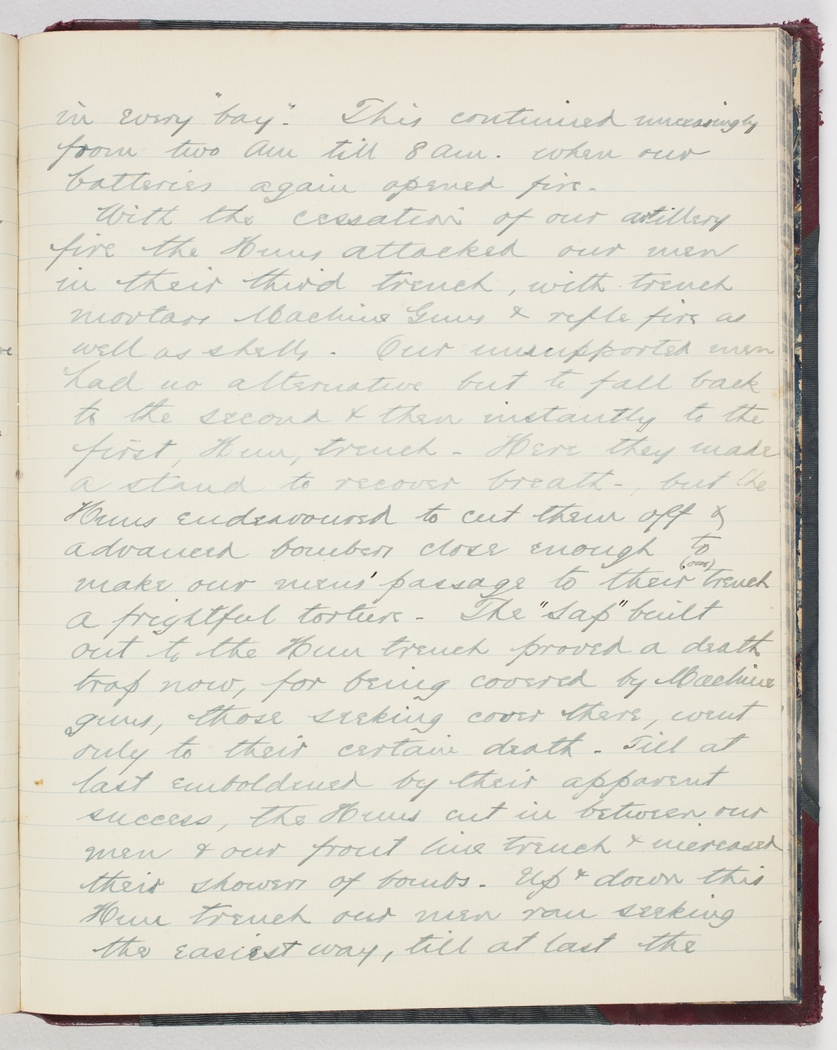 in every "bay". This continued unceasingly
from two am till 8 am. when our
batteries again opened fire.
With the cessation of our artillery
fire the Huns attacked our men
in their third trench, with trench
mortars Machine Guns & rifle fire as
well as shells. Our unsupported men
had no alternative but to fall back
to the second & then instantly to the
first, Hun, trench - Here they made
a stand to recover breath -, but the
Huns endeavoured to cut them off &
advanced bombers close enough to
make our mens' passage to their (our) trench
a frightful torture - The "Sap" built
out to the Hun trench proved a death
trap now, for being covered by Machine
guns, those seeking cover there, went
only to their certain death - Till at
last emboldened by their apparent
success, the Huns cut in between our
men & our front line trench & increased
their showers of bombs - Up & down this
Hun trench our men ran seeking
the easiest way, till at last the